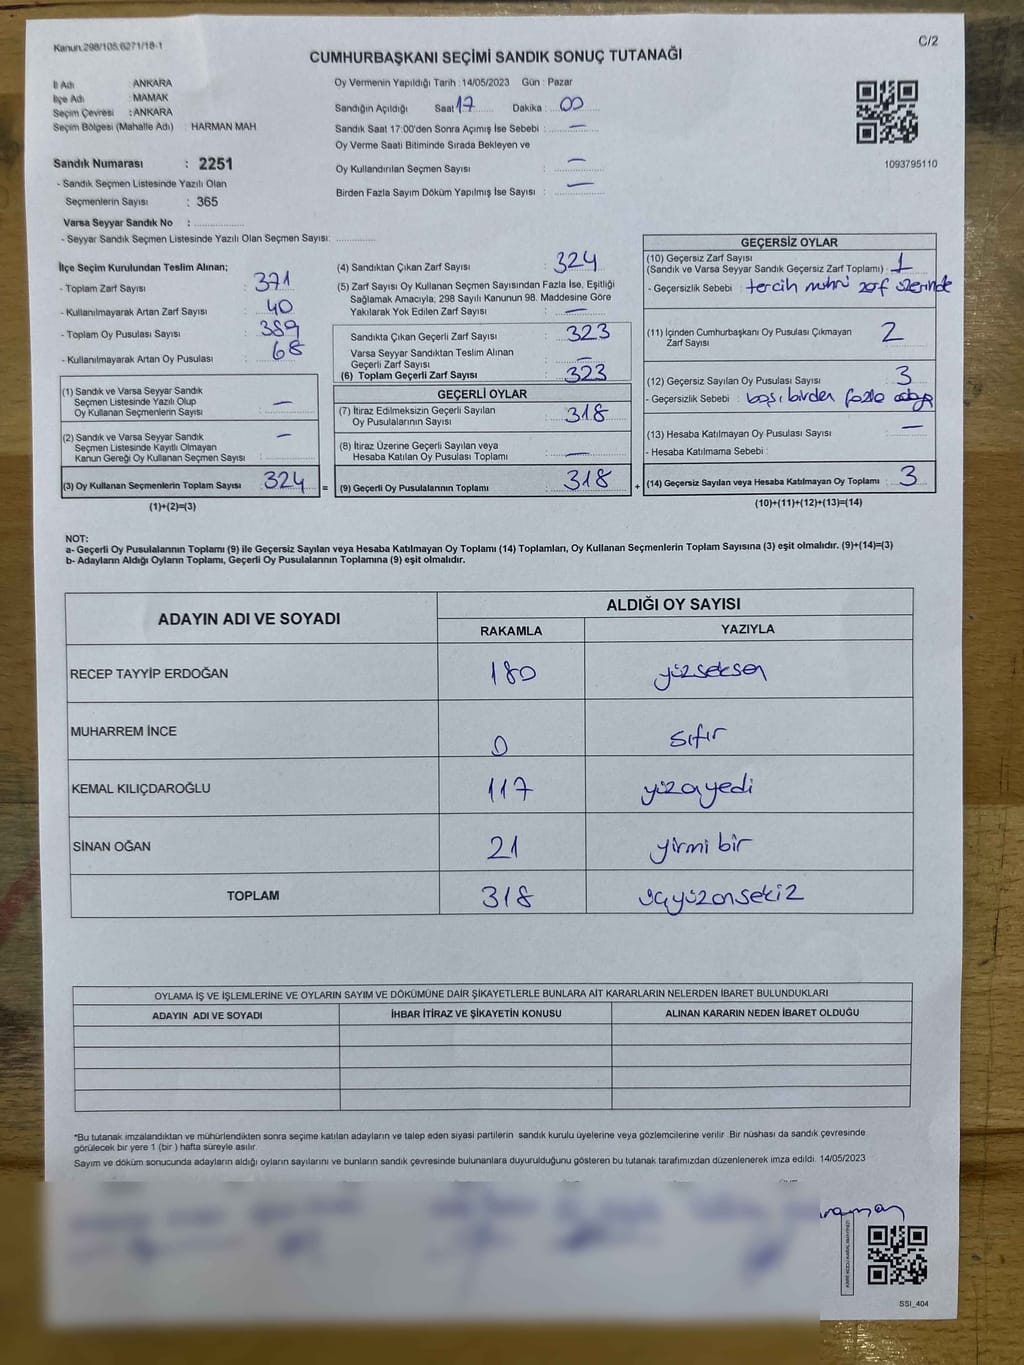 Kanun.298/105,6271/18-1
C/2
CUMHURBAŞKANI SEÇİMİ SANDIK SONUÇ TUTANAĞI
İl Adı : ANKARA
İlçe Adı : MAMAK
Seçim Çevresi : ANKARA
Seçim Bölgesi (Mahalle Adı) : HARMAN MAH
Sandık Numarası : 2251
- Sandık Seçmen Listesinde Yazılı Olan
Seçmenlerin Sayısı : 365
Varsa Seyyar Sandık No :
- Seyyar Sandık Seçmen Listesinde Yazılı Olan Seçmen Sayısı:
Oy Vermenin Yapıldığı Tarih : 14/05/2023 Gün : Pazar
Sandığın Açıldığı Saat 17 Dakika : 00
Sandık Saat 17:00'den Sonra Açımış İse Sebebi : —
Oy Verme Saati Bitiminde Sırada Bekleyen ve
Oy Kullandırılan Seçmen Sayısı : —
Birden Fazla Sayım Döküm Yapılmış İse Sayısı : —
1093795110
İlçe Seçim Kurulundan Teslim Alınan;
- Toplam Zarf Sayısı : 371
- Kullanılmayarak Artan Zarf Sayısı : 40
- Toplam Oy Pusulası Sayısı : 389
- Kullanılmayarak Artan Oy Pusulası : 68
(1) Sandık ve Varsa Seyyar Sandık
Seçmen Listesinde Yazılı Olup
Oy Kullanan Seçmenlerin Sayısı : —
(2) Sandık ve Varsa Seyyar Sandık
Seçmen Listesinde Kayıtlı Olmayan
Kanun Gereği Oy Kullanan Seçmen Sayısı : —
(3) Oy Kullanan Seçmenlerin Toplam Sayısı : 324 =
(1)+(2)=(3)
(4) Sandıktan Çıkan Zarf Sayısı : 324
(5) Zarf Sayısı Oy Kullanan Seçmen Sayısından Fazla İse, Eşitliği
Sağlamak Amacıyla; 298 Sayılı Kanunun 98. Maddesine Göre
Yakılarak Yok Edilen Zarf Sayısı : —
Sandıkta Çıkan Geçerli Zarf Sayısı : 323
Varsa Seyyar Sandıktan Teslim Alınan
Geçerli Zarf Sayısı : —
(6) Toplam Geçerli Zarf Sayısı : 323
GEÇERLİ OYLAR
(7) İtiraz Edilmeksizin Geçerli Sayılan
Oy Pusulalarının Sayısı : 318
(8) İtiraz Üzerine Geçerli Sayılan veya
Hesaba Katılan Oy Pusulası Toplamı : —
(9) Geçerli Oy Pusulalarının Toplamı : 318 +
GEÇERSİZ OYLAR
(10) Geçersiz Zarf Sayısı
(Sandık ve Varsa Seyyar Sandık Geçersiz Zarf Toplamı) : 1
- Geçersizlik Sebebi : tercih mührü zarf üzerinde
(11) İçinden Cumhurbaşkanı Oy Pusulası Çıkmayan
Zarf Sayısı : 2
(12) Geçersiz Sayılan Oy Pusulası Sayısı : 3
- Geçersizlik Sebebi : birden fazla adaya
(13) Hesaba Katılmayan Oy Pusulası Sayısı : —
- Hesaba Katılmama Sebebi :
(14) Geçersiz Sayılan veya Hesaba Katılmayan Oy Toplamı : 3
(10)+(11)+(12)+(13)=(14)
NOT:
a- Geçerli Oy Pusulalarının Toplamı (9) ile Geçersiz Sayılan veya Hesaba Katılmayan Oy Toplamı (14) Toplamları, Oy Kullanan Seçmenlerin Toplam Sayısına (3) eşit olmalıdır. (9)+(14)=(3)
b- Adayların Aldığı Oyların Toplamı, Geçerli Oy Pusulalarının Toplamına (9) eşit olmalıdır.
ADAYIN ADI VE SOYADI
ALDIĞI OY SAYISI
RAKAMLA YAZIYLA
RECEP TAYYİP ERDOĞAN 180 yüzseksen
MUHARREM İNCE 0 sıfır
KEMAL KILIÇDAROĞLU 117 yüzonyedi
SİNAN OĞAN 21 yirmi bir
TOPLAM 318 üçyüzonsekiz
OYLAMA İŞ VE İŞLEMLERİNE VE OYLARIN SAYIM VE DÖKÜMÜNE DAİR ŞİKAYETLERLE BUNLARA AİT KARARLARIN NELERDEN İBARET BULUNDUKLARI
ADAYIN ADI VE SOYADI İHBAR İTİRAZ VE ŞİKAYETİN KONUSU ALINAN KARARIN NEDEN İBARET OLDUĞU
*Bu tutanak imzalandıktan ve mühürlendikten sonra seçime katılan adayların ve talep eden siyasi partilerin sandık kurulu üyelerine veya gözlemcilerine verilir. Bir nüshası da sandık çevresinde
görülecek bir yere 1 (bir) hafta süreyle asılır.
Sayım ve döküm sonucunda adayların aldığı oyların sayılarını ve bunların sandık çevresinde bulunanlara duyurulduğunu gösteren bu tutanak tarafımızdan düzenlenerek imza edildi. 14/05/2023
SSI_404